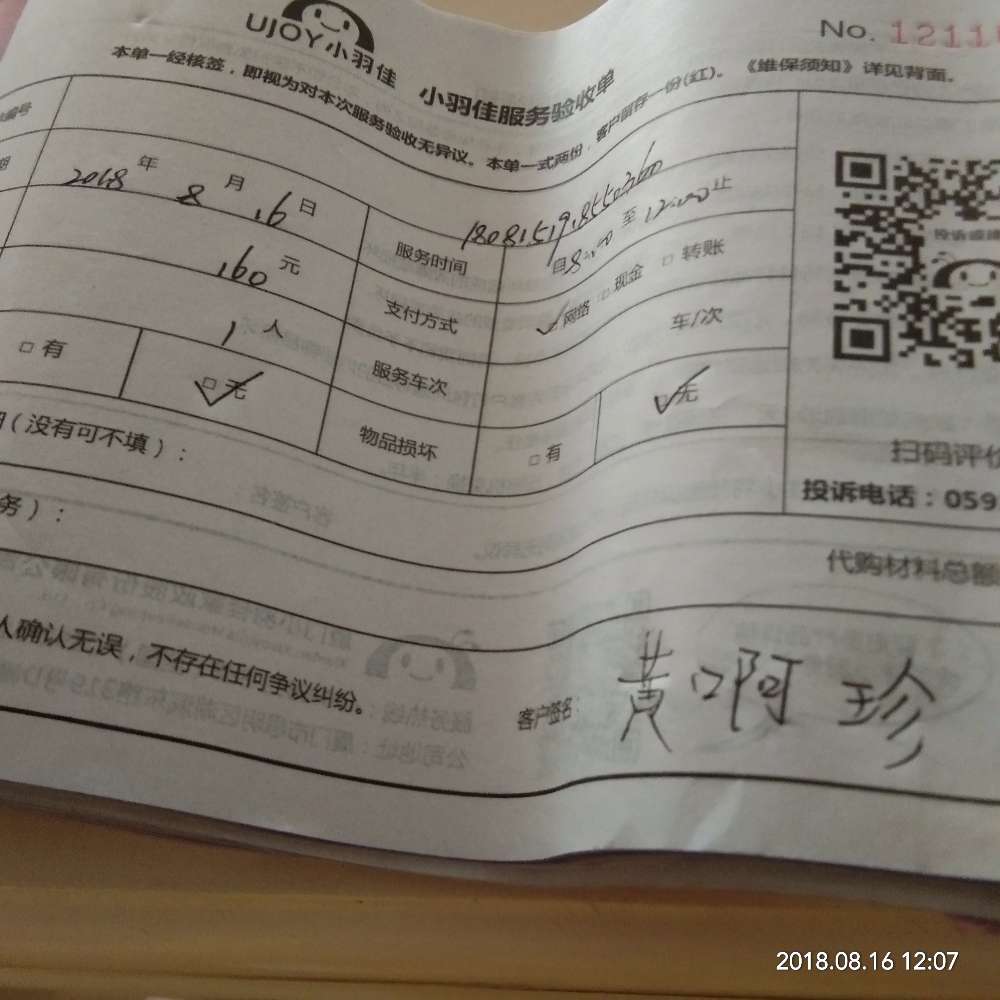 UJOY小羽佳
小羽佳服务验收单
No. 1211
本单一经核签，即视为对本次服务验收无异议。本单一式两份，客户留存一份(红)。《维保须知》详见背面。
编号
期 2018 年 8 月 16 日
服务时间 自8:00 至 12:00止
160 元
支付方式 ☑网络 □现金 □转账
1 人
服务车次 车/次
□有 ☑无
物品损坏 □有 ☑无
(没有可不填)：
务)：
扫码评价
投诉电话：059
代购材料总额
人确认无误，不存在任何争议纠纷。
客户签名：黄啊珍
2018.08.16 12:07